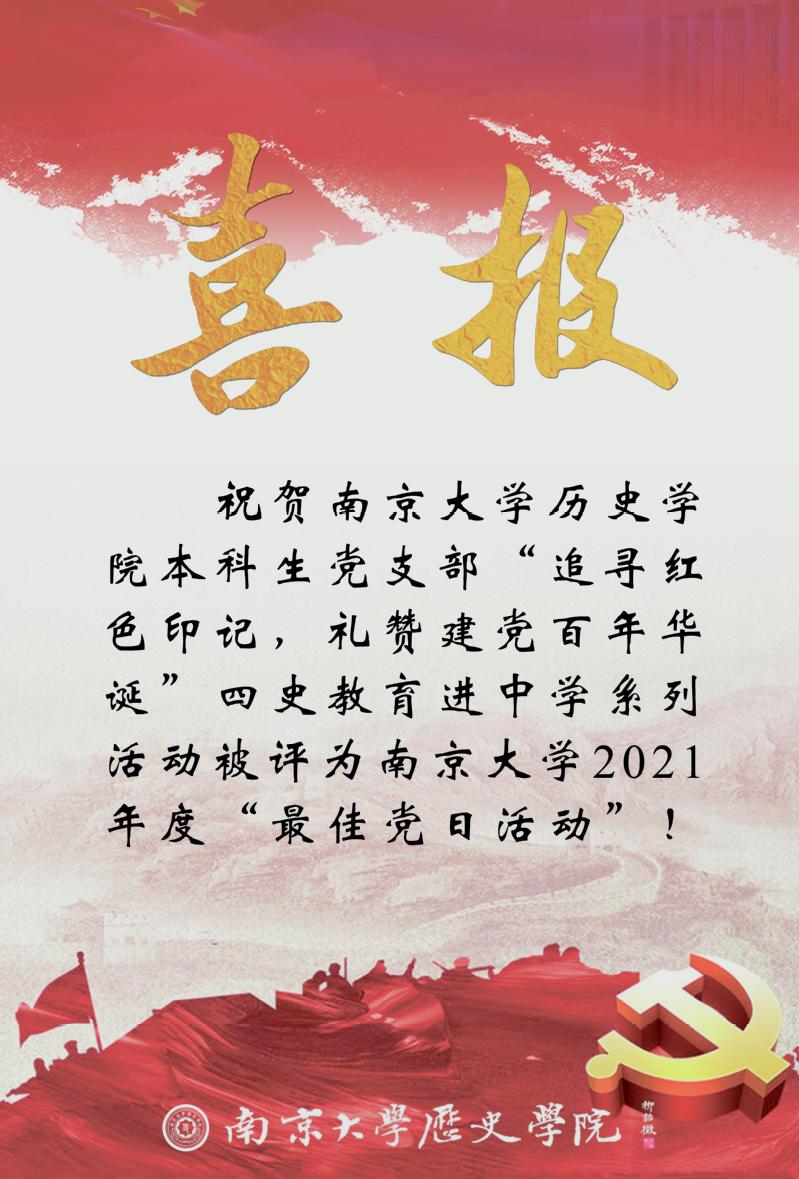 喜报
祝贺南京大学历史学
院本科生党支部“追寻红
色印记，礼赞建党百年华
诞”四史教育进中学系列
活动被评为南京大学2021
年度“最佳党日活动”！
南京大學歷史學院
柳詒徵